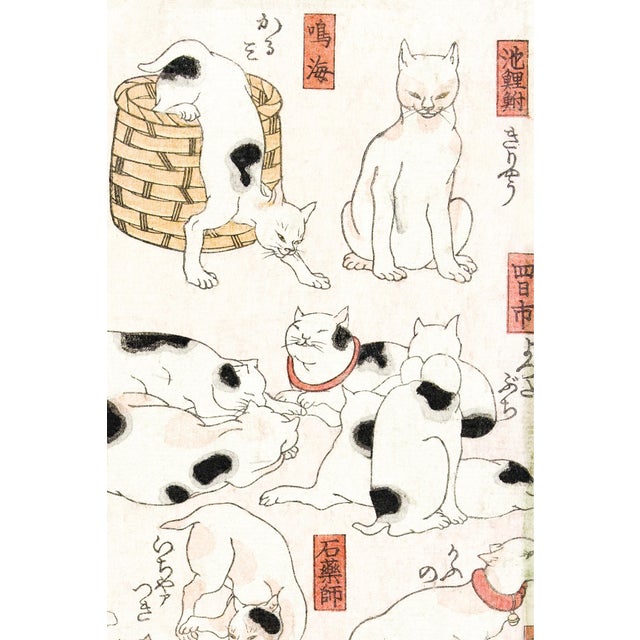 池鯉鮒
きりやう
鳴海
かるみ
四日市
よつたぶち
石薬師
いちやァつき
かふの